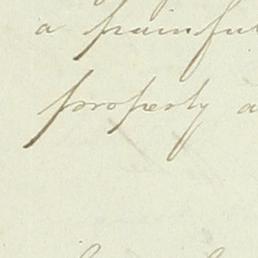 a painful
property a